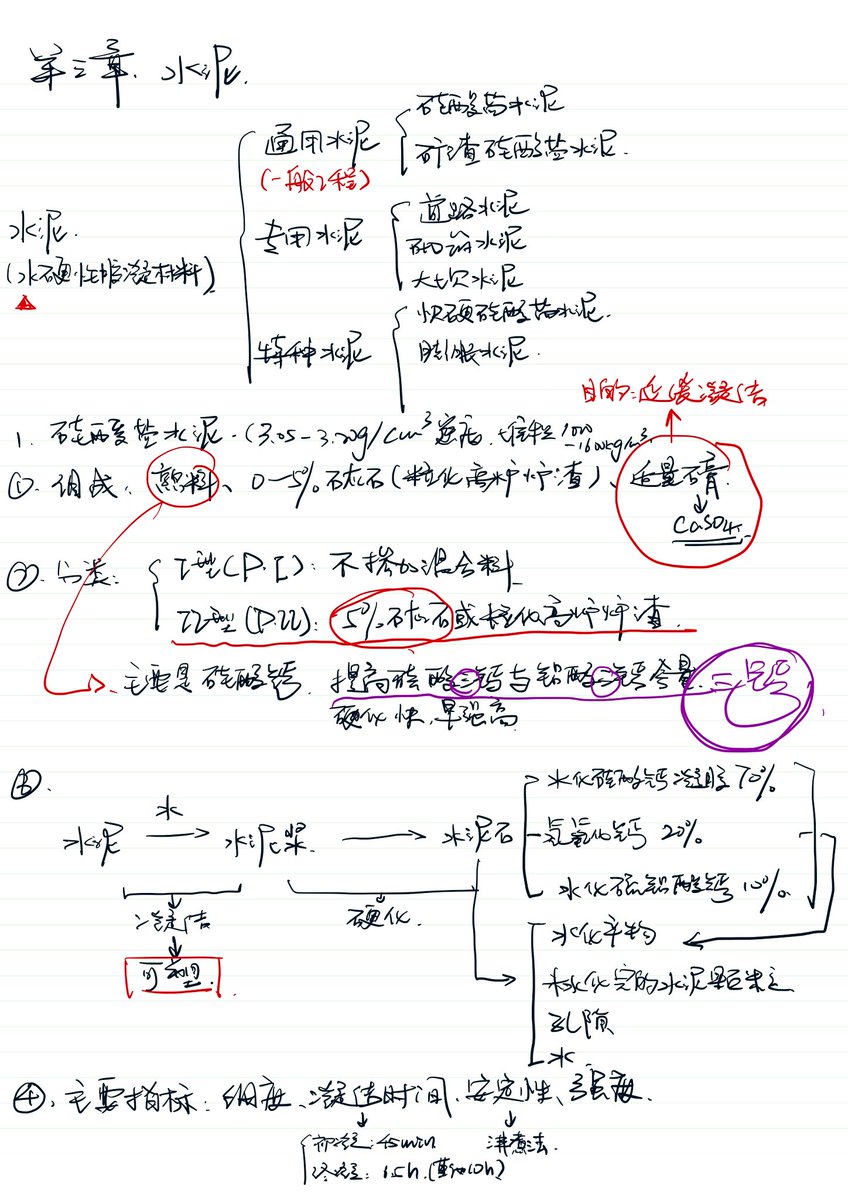 第三章. 水泥.
水泥.
(水硬性胶凝材料)
通用水泥
(一般工程)
硅酸盐水泥
矿渣硅酸盐水泥.
专用水泥
道路水泥
砌筑水泥
大坝水泥
特种水泥
快硬硅酸盐水泥.
膨胀水泥.
目的:延缓凝结
1. 硅酸盐水泥.(3.05-3.20g/cm³密度.堆积1000-1600kg/m³.
①. 组成: 熟料、0-5%石灰石(粒化高炉炉渣)、适量石膏.
CaSO4.
②. 分类:
I型(P.I): 不掺加混合料
II型(P.II): 5%石灰石或粒化高炉炉渣.
主要是硅酸钙. 提高硅酸三钙与铝酸三钙含量. 三早等
硬化快,早强高
③.
水泥 水→ 水泥浆. → 水泥石
水化硅酸钙凝胶 70%
氢氧化钙 20%
水化硫铝酸钙 10%.
凝结
可塑.
硬化.
水化产物
未水化完的水泥颗粒
孔隙
水.
④. 主要指标: 细度、凝结时间、安定性、强度.
初凝: 45min
终凝: 6.5h.(其他10h)
沸煮法.